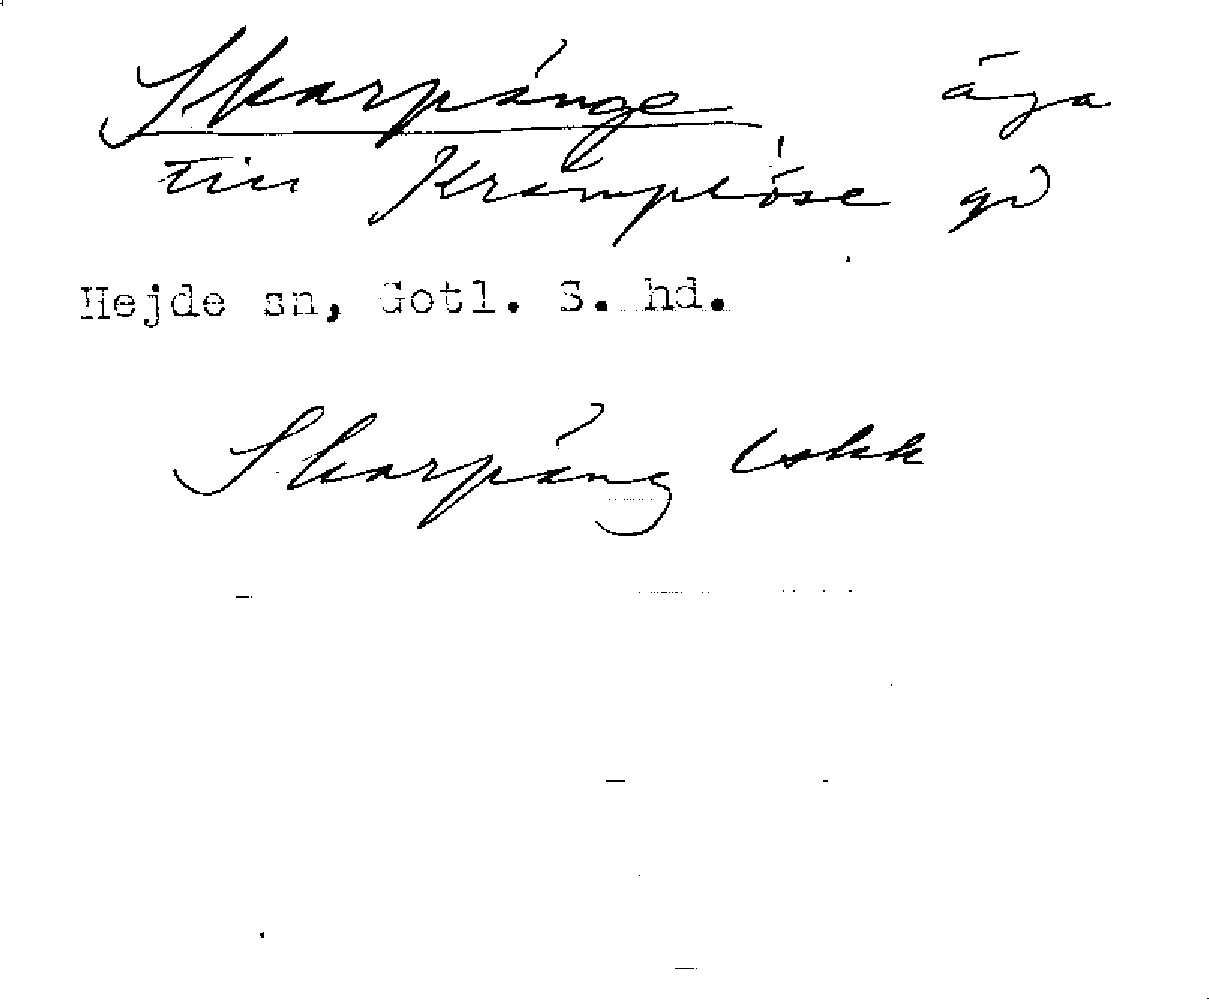 Skarpänge äga
till Kramplöse gd
Hejde sn, Gotl. S. hd.
Skarpäng Eskk